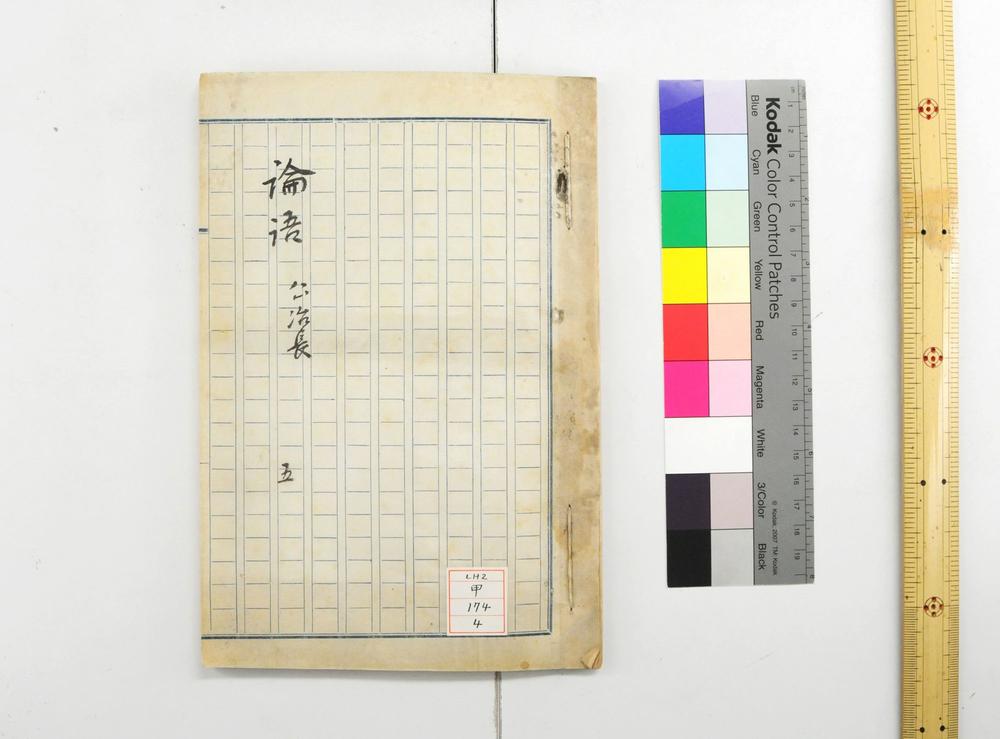 論語
公冶長
五
LH2
甲
174
4
Kodak Color Control Patches
Blue
Cyan
Green
Yellow
Red
Magenta
White
3/Color
Black
© Kodak, 2007 TM: Kodak
cm 1 2 3 4 5 6 7 8 9 10 11 12 13 14 15 16 17 18 19